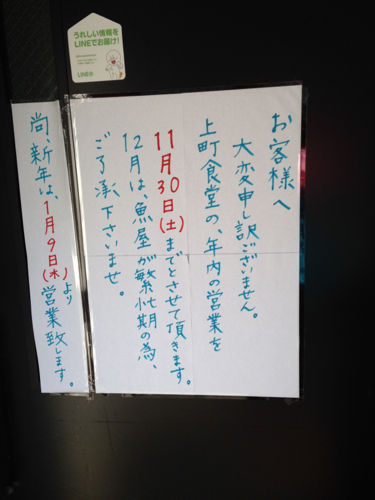 うれしい情報を
LINEでお届け!
LINE@
お客様へ
大変申し訳ございません。
上町食堂の、年内の営業を
11月30日(土)までとさせて頂きます。
12月は、魚屋が繁忙期の為、
ご了承下さいませ。
尚、新年は、1月9日(木)より営業致します。